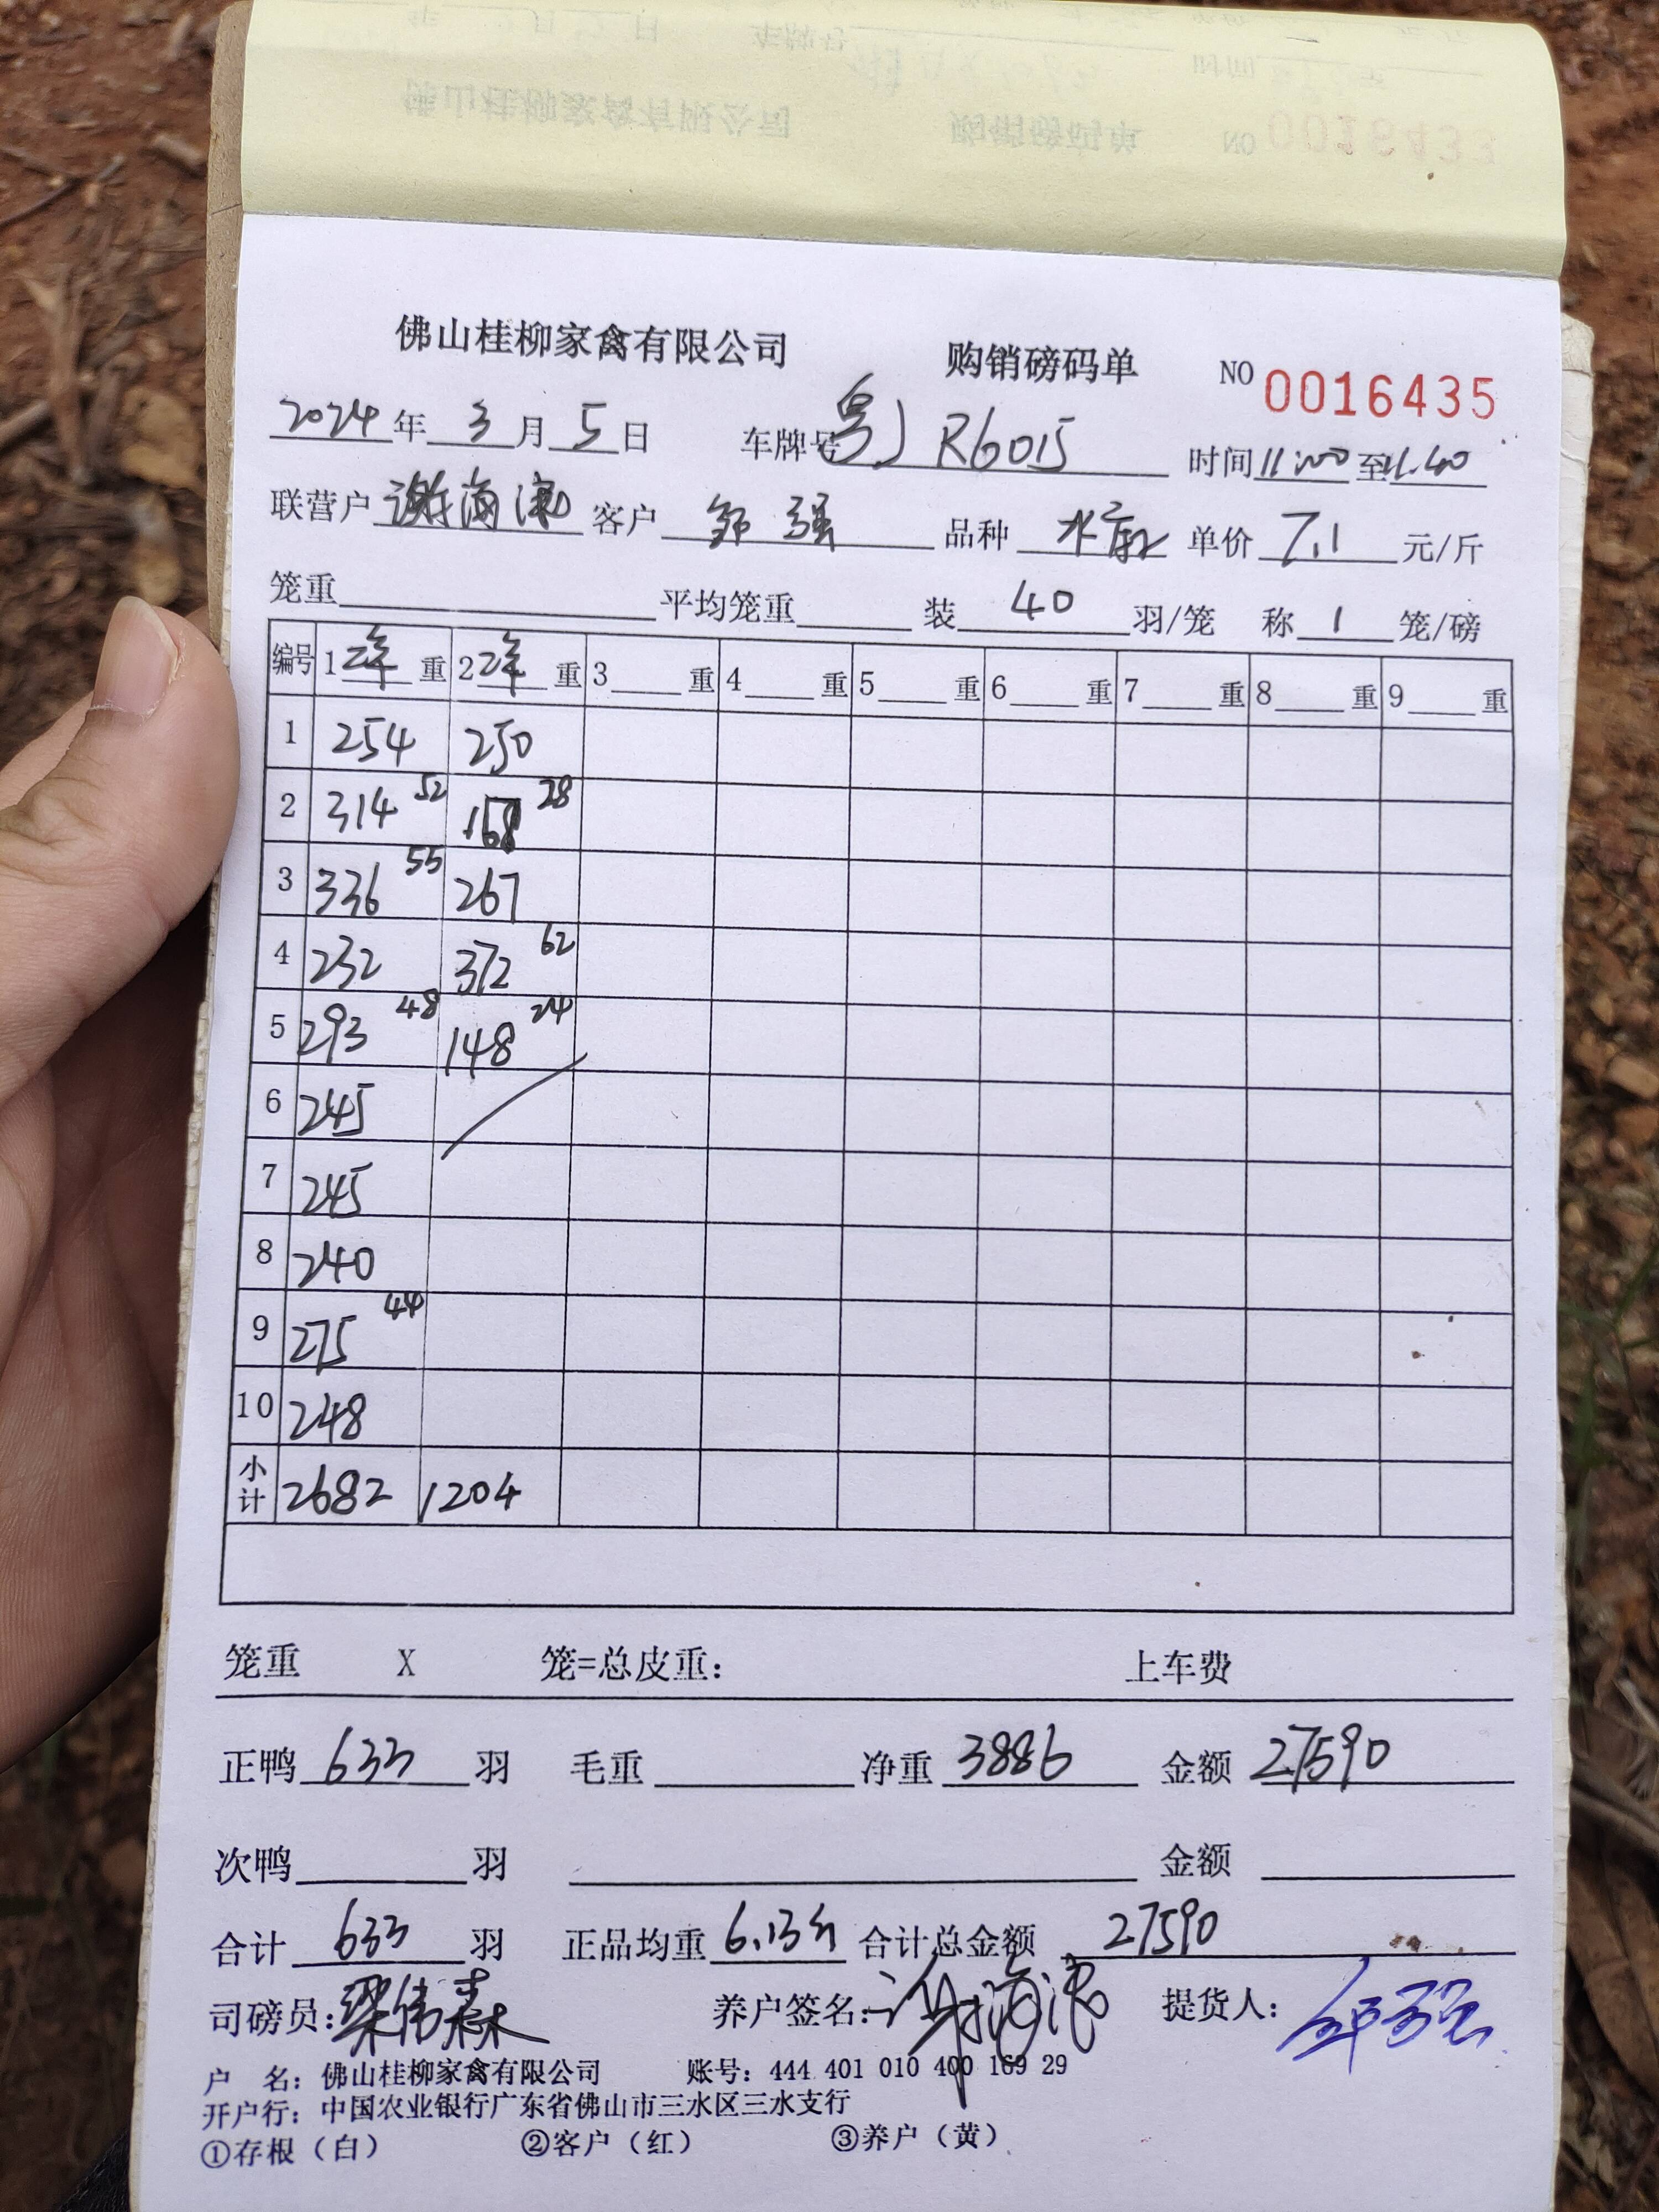 佛山桂柳家禽有限公司 购销磅码单 NO 0016435
2024年3月5日 车牌号粤J R6015 时间11:00至11:40
联营户谢海浪 客户 邹强 品种 单价7.1元/斤
笼重 平均笼重 装40羽/笼 称1笼/磅
编号 1净重 2净重 3重 4重 5重 6重 7重 8重 9重
1 254 250
2 314 52 168 28
3 336 55 267
4 232 372 62
5 293 48 148 24
6 245
7 245
8 240
9 275 44
10 248
小计 2682 1204
笼重 X 笼=总皮重: 上车费
正鸭633羽 毛重 净重3886 金额27590
次鸭 羽 金额
合计633羽 正品均重6.13斤 合计总金额27590
司磅员:梁伟森 养户签名:谢海浪 提货人:邹强
户 名: 佛山桂柳家禽有限公司 账号: 444 401 010 400 169 29
开户行: 中国农业银行广东省佛山市三水区三水支行
①存根（白） ②客户（红） ③养户（黄）